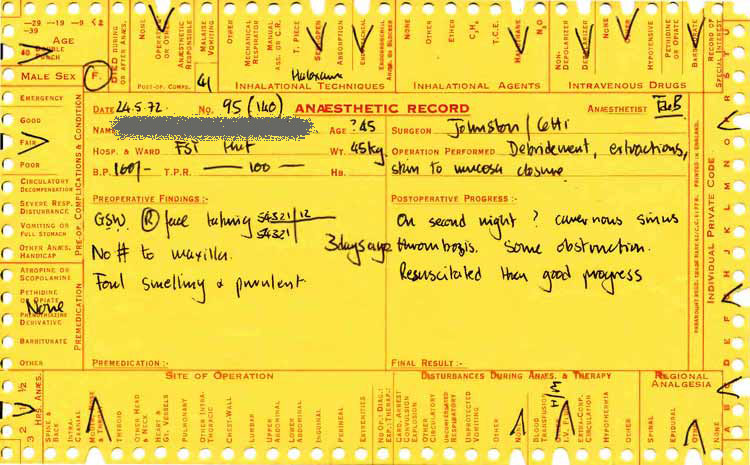 -29 -19 -9 <2
-39
AGE
DOUBLE PUNCH
MALE SEX F.
DIED DURING OR AFTER ANÆS.
NONE
COOPERATED OR OTHER
ANÆSTHETIC RESPONSIBLE
MALAISE VOMITING
OTHER
MECHANICAL RESPIRATOR
MANUAL ASS. OR C.R.
T. PIECE
ABSORPTION
NONE
OTHER
ETHER
C₃H₆
T.C.E.
HALOTHANE
N₂O
NON-DEPOLARIZER
DEPOLARIZER
NONE
OTHER
HYPOTENSIVE
PETHIDINE OR OPIATE
BARBITURATE
RECORD OF SPECIAL INTEREST
POST-OP. COMPS.
INHALATIONAL TECHNIQUES
INHALATIONAL AGENTS
INTRAVENOUS DRUGS
DATE 24.5.72. NO. 95 (140) ANÆSTHETIC RECORD ANÆSTHETIST
NAME AGE ?45 SURGEON Johnston /
HOSP. & WARD FST Hut WT. 45kg. OPERATION PERFORMED Debridement, extractions,
B.P. 100/- T.P.R. — 100 — HB. skin to mucosa closure.
PREOPERATIVE FINDINGS:-
GSW (R) face taking 54321/12
54321/
3 days ago
No # to maxilla.
Foul smelling & purulent
PREMEDICATION :-
POSTOPERATIVE PROGRESS :-
On second night ? cavernous sinus
thrombosis. Some obstruction.
Resuscitated then good progress
FINAL RESULT :-
EMERGENCY
GOOD
FAIR
POOR
CIRCULATORY DECOMPENSATION
SEVERE RESP. DISTURBANCE
VOMITING OR FULL STOMACH
OTHER ANÆS. HANDICAP
PRE-OP. COMPLICATIONS & CONDITION
ATROPINE OR SCOPOLAMINE
PETHIDINE OR OPIATE
None
PHENOTHIAZINE DERIVATIVE
BARBITURATE
OTHER
PREMEDICATION
INDIVIDUAL PRIVATE CODE
PRINTED IN ENGLAND.
SITE OF OPERATION
DISTURBANCES DURING ANÆS. & THERAPY
REGIONAL ANALGESIA
3 2 1 ½
HRS. ANÆS.
SPINE & BACK
INTRA-CRANIAL
THYROID
OTHER HEAD & NECK
HEART & GT. VESSELS
PULMONARY
OTHER INTRA-THORACIC
CHEST-WALL
LUMBAR
UPPER ABDOMINAL
LOWER ABDOMINAL
INGUINAL
PERINEAL
EXTREMITIES
CARD. ARREST
CONVULSION
EXPLOSION
OTHER CIRCULATORY
UNCOMPLICATED RESPIRATORY
UNPROTECTED VOMITING
OTHER
NONE
BLOOD TRANSFUSION
H/M
I.V. FLUID
EXTRA-CORP. CIRCULATION
HYPOTHERMIA
OTHER
SPINAL
EPIDURAL
OTHER
NONE